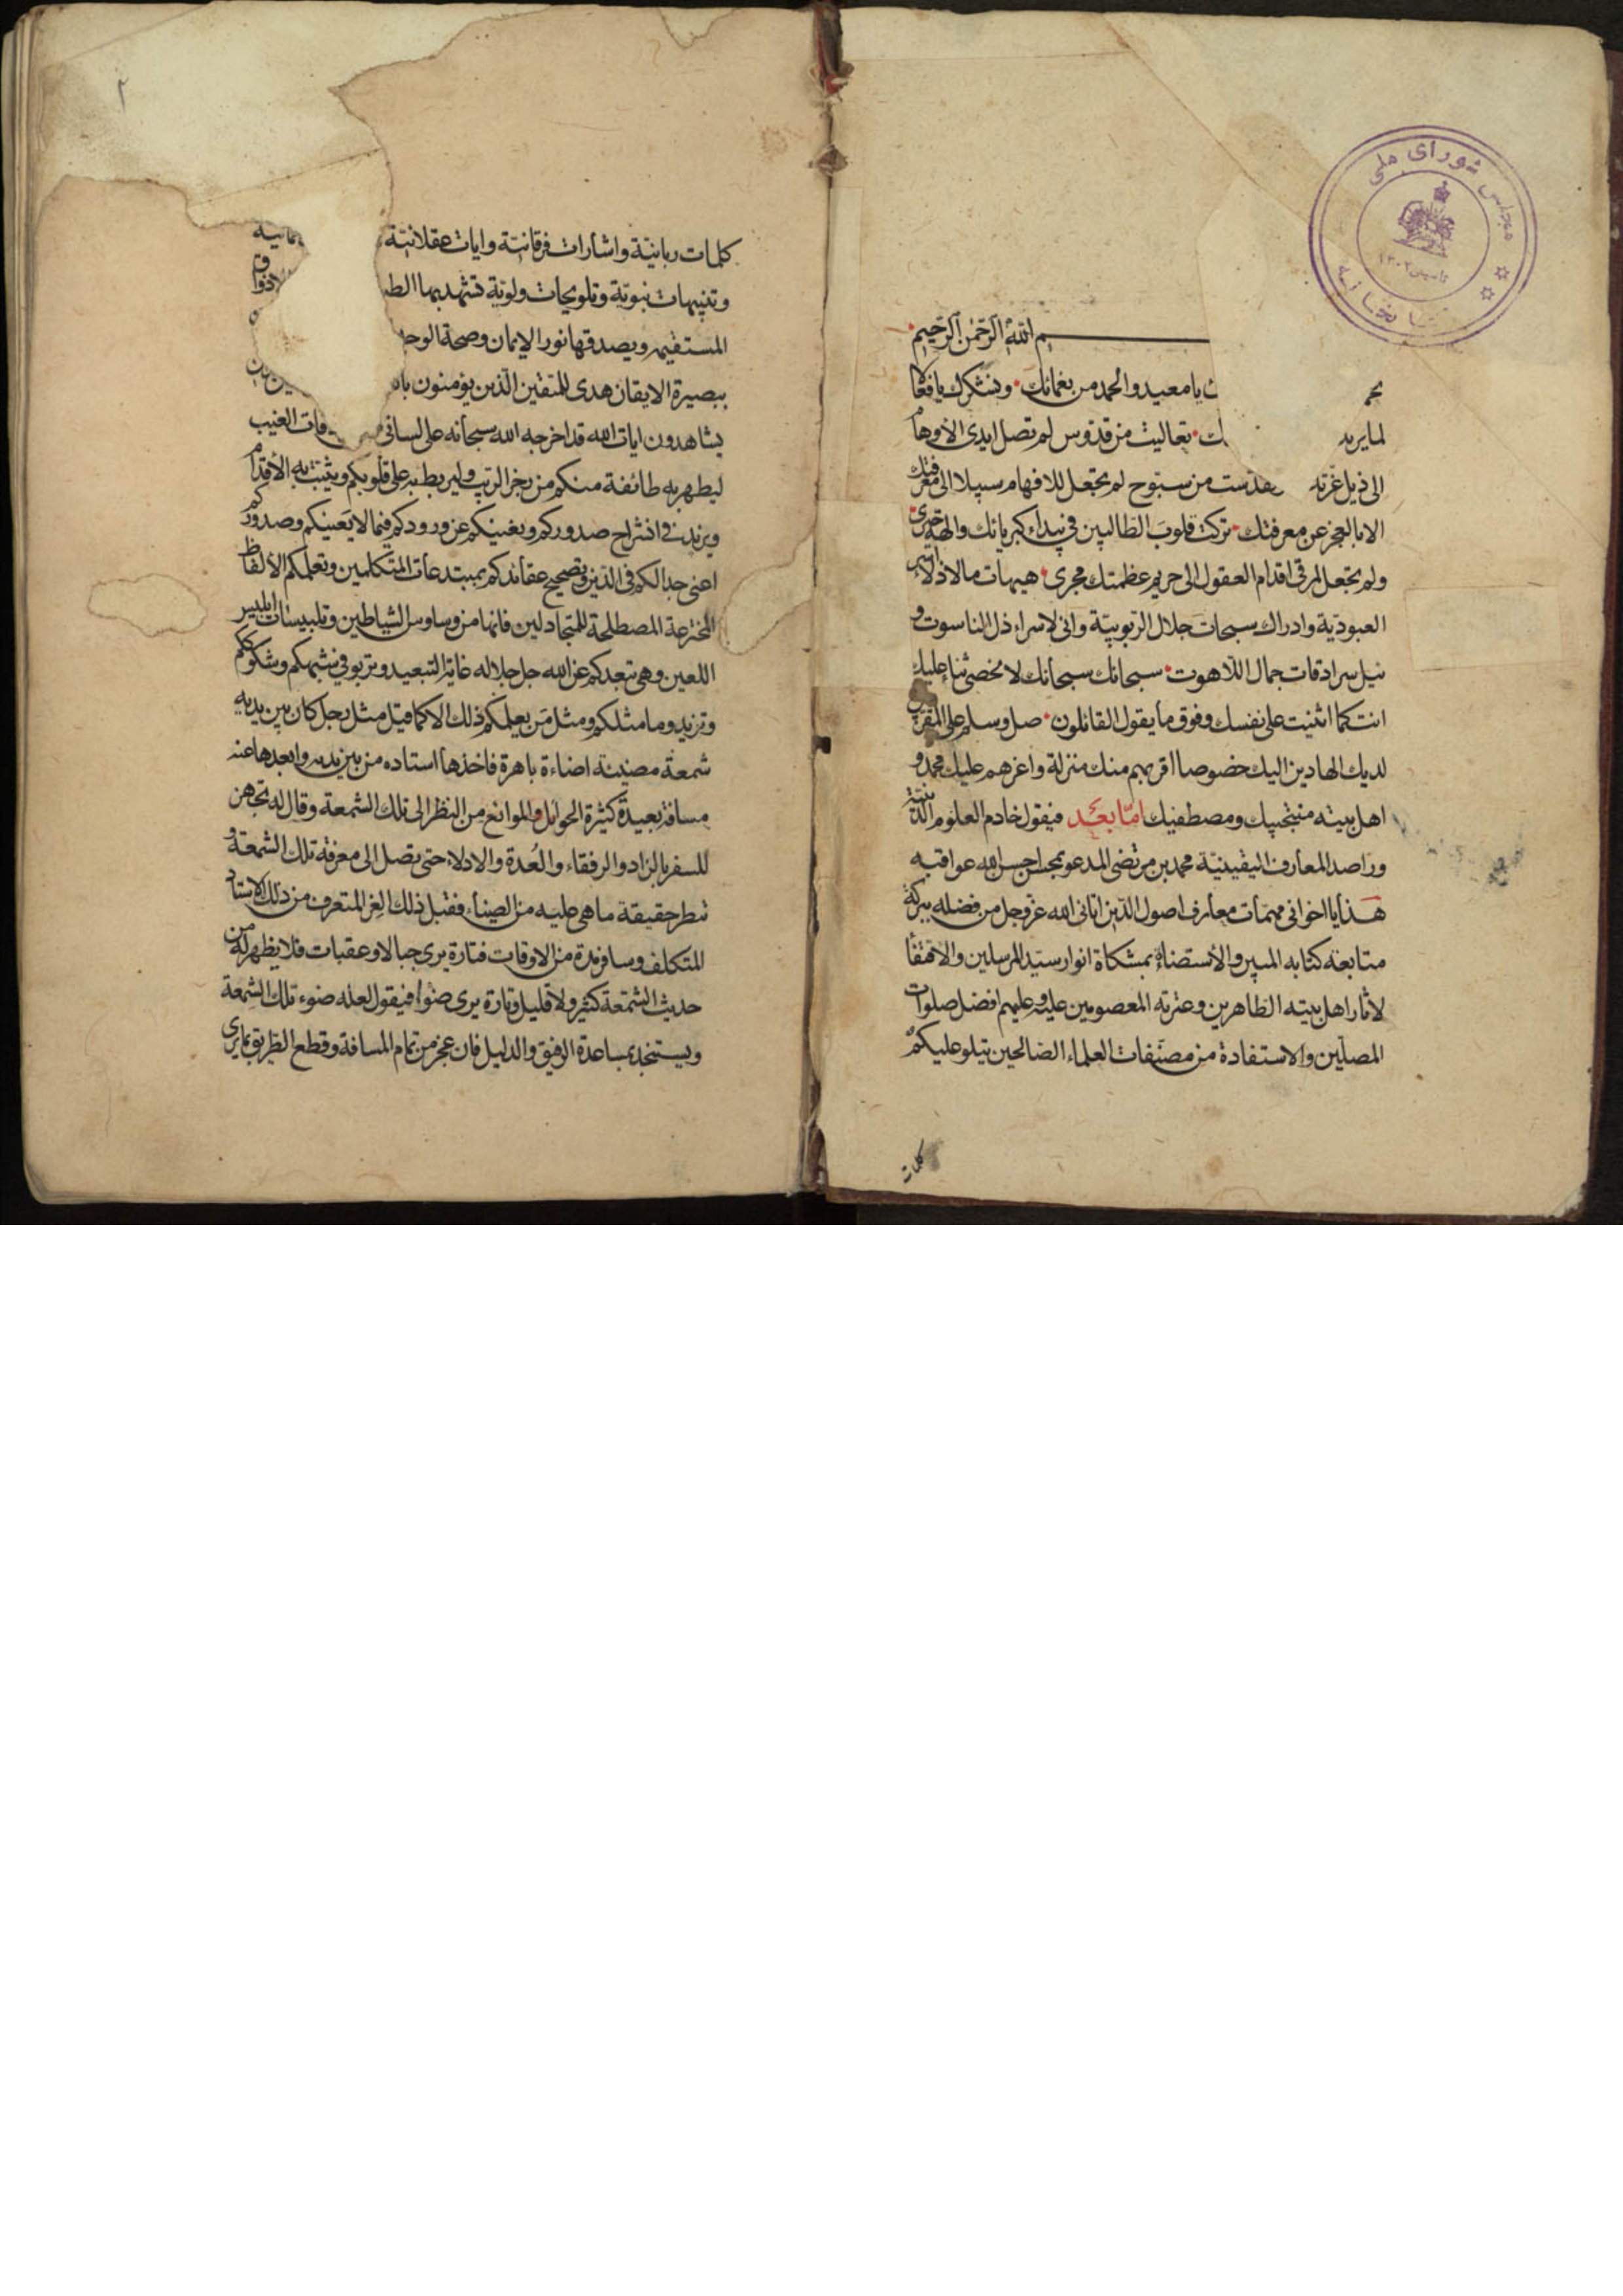 مجلس شورای ملی
تأسیس ١٣٠٢
م الله الرحمن الرحیم
یا معید والحمد من نعمائك ونشكرك یا فعالا
لما یرید ك تعالیت من قدوس لم تصل ایدی الاوهام
الی ذیل عزته تقدست من سبوح لم تجعل للافهام سبیلا الی معرفتك
الا بالعجز عن معرفتك تركت قلوب الطالبین فی بیداء كبریائك والهة حیری
ولم تجعل لمرقی اقدام العقول الی حریم عظمتك مجری هیهات ما لاذلاء اسر
العبودیة وادراك سبحات جلال الربوبیة وانی لاسراء ذل الناسوت و
نیل سرادقات جمال اللاهوت سبحانك سبحانك لا نحصی ثناء علیك
انت كما اثنیت علی نفسك وفوق ما یقول القائلون صل وسلم علی المقربین
لدیك الهادین الیك خصوصا اقربهم منك منزلة واعزهم علیك محمد و
اهل بیته منتجبیك ومصطفیك اما بعد فیقول خادم العلوم الدینیة
وراصد المعارف الیقینیة محمد بن مرتضی المدعو بمحسن احسن الله عواقبه
هذا یا اخوانی مهمات معارف اصول الدین اتانی الله عز وجل من فضله ببركة
متابعة كتابه المبین والاستضاءة بمشكاة انوار سید المرسلین والاقتفاء
لاثار اهل بیته الطاهرین وعترته المعصومین علیه وعلیهم افضل صلوات
المصلین والاستفادة من مصنفات العلماء الصالحین یتلو علیكم
كلمات
٢
كلمات ربانیة واشارات فرقانیة وایات عقلانیة
وتنبیهات نبویة وتلویحات ولویة تشهد بها الط
المستقیم ویصدقها نور الایمان وصحة الوجد
ببصیرة الایقان هدی للمتقین الذین یؤمنون با
یشاهدون ایات الله قد اخرجه الله سبحانه علی لسانی الغیب
لیطهر به طائفة منكم من رجز الریب ولیربط به علی قلوبكم ویثبت به الاقدام
ویزید فی انشراح صدوركم ویغنیكم عن ورودكم فیما لا یعنیكم وصدوركم
اعنی جدالكم فی الدین وتصحیح عقائدكم بمبتدعات المتكلمین وتعلمكم الالفاظ
المخترعة المصطلحة للمتجادلین فانها من وساوس الشیاطین وتلبیسات ابلیس
اللعین وهی تبعدكم عن الله جل جلاله غایة التبعید وتربو فی شبهكم وشكوككم
وتزید وما مثلكم ومثل من یعلمكم ذلك الا كما قیل مثل رجل كان بین یدیه
شمعة مضیئة اضاءة باهرة فاخذها استاده من بین یدیه وابعدها عنه
مسافة بعیدة كثیرة الحوائل والموانع من النظر الی تلك الشمعة وقال له تجهز
للسفر بالزاد والرفقاء والعدة والادلاء حتی تصل الی معرفة تلك الشمعة و
تنظر حقیقة ما هی علیه من الضیاء فقبل ذلك الغر المتعرف من ذلك الاستاد
المتكلف وسافر مدة من الاوقات فتارة یری جبالا وعقبات فلا یظهر له من
حدیث الشمعة كثیر ولا قلیل وتارة یری ضوءا فیقول لعله ضوء تلك الشمعة
ویستنجد بمساعدة الرفیق والدلیل فان عجز من تمام المسافة وقطع الطریق بما یری